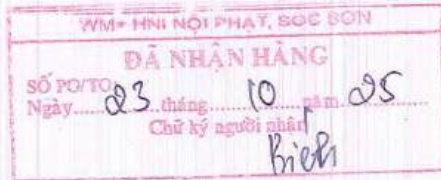 WM+ HNI NỘI PHẬT, SÓC SƠN
ĐÃ NHẬN HÀNG
SỐ PO/TO
Ngày......23..tháng......10......năm..25......
Chữ ký người nhận
Biển